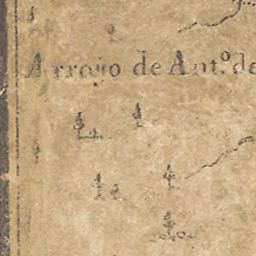 Arroyo de Antº. de